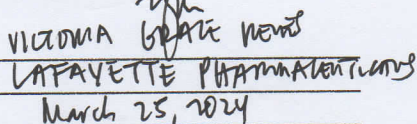 VICTORIA GRACE
LAFAYETTE PHARMACEUTICALS
March 25, 2024